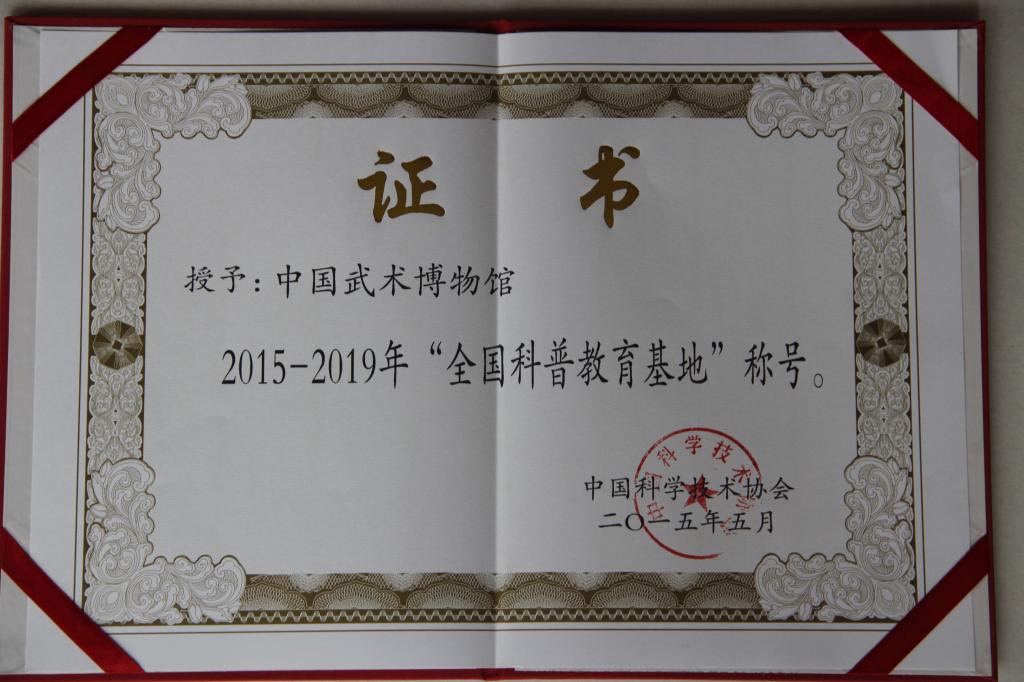 证 书
授予：中国武术博物馆
2015-2019年“全国科普教育基地”称号。
中国科学技术协会
二〇一五年五月
中国科学技术协会